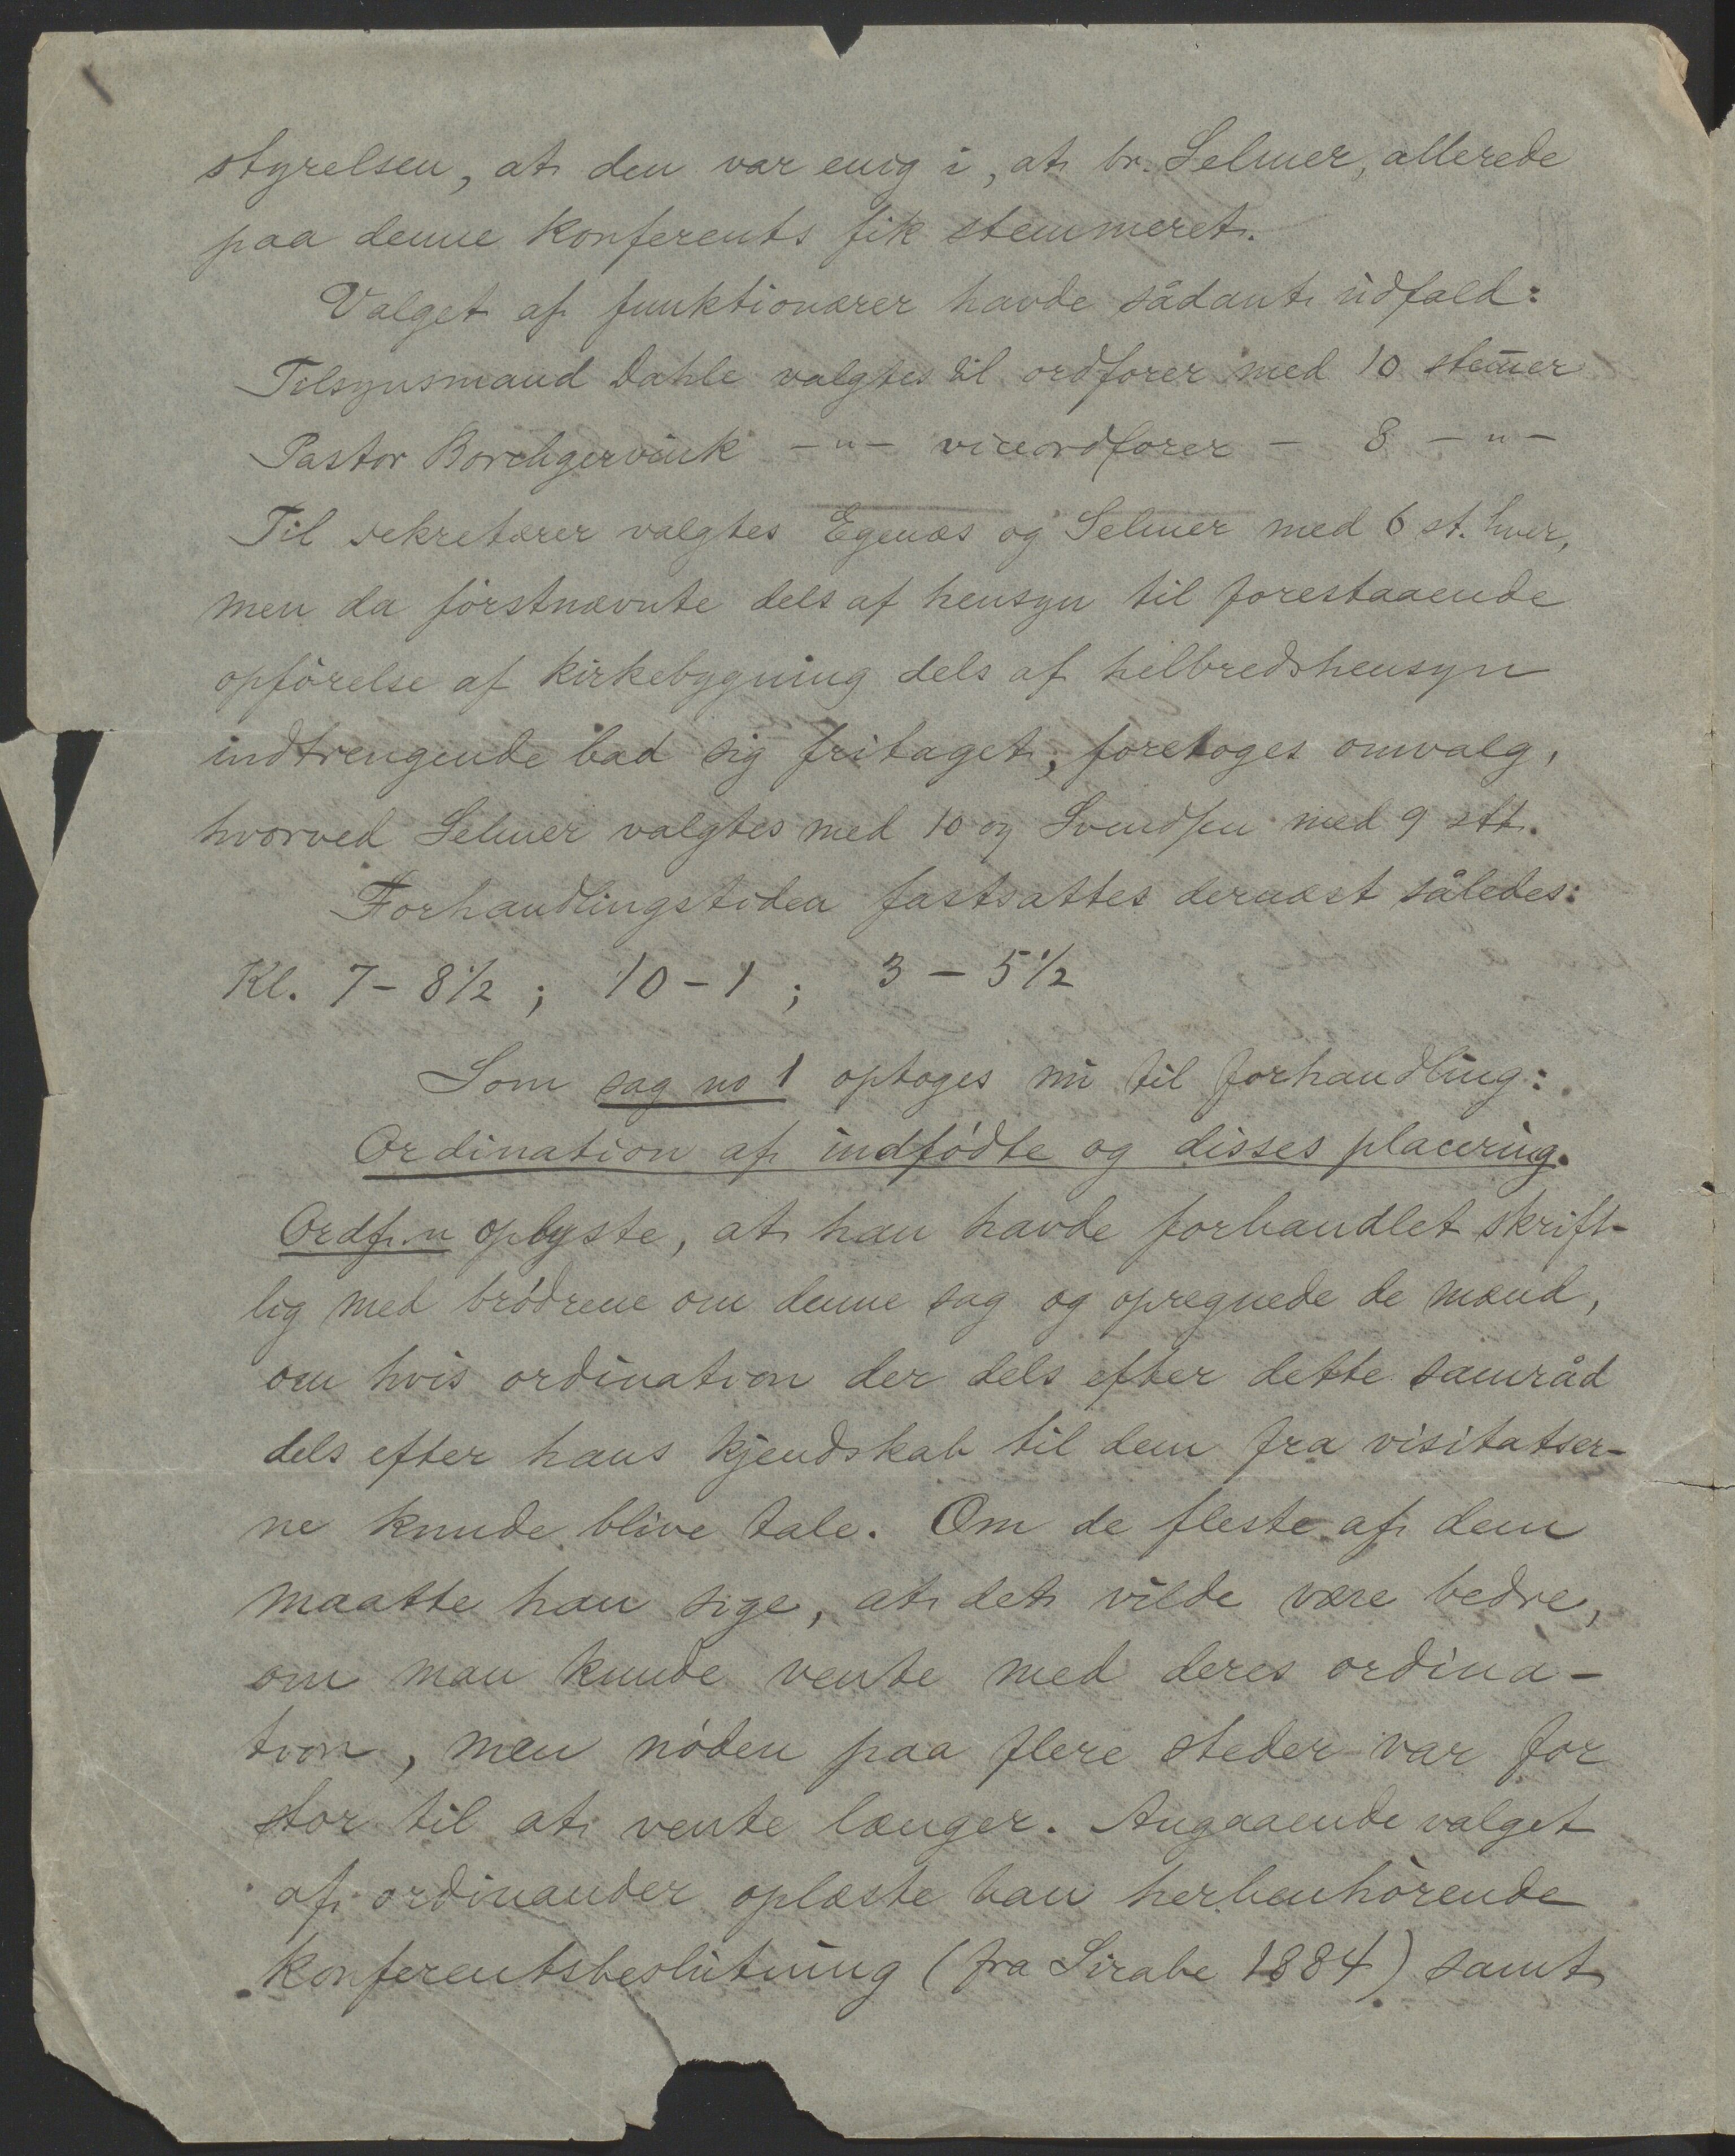 styrelsen, at den var enig i, at br. Selmer, allerede
paa denne konferents fik stemmeret.
Valget af funktionærer havde sådant udfald:
Tilsynsmand Dahle valgtes til ordfører med 10 stem̄er
Pastor Borchgrevink -"- viceordfører - 8 -"-
Til sekretærer valgtes Egenæs og Selmer med 6 st. hver,
men da förstnævnte dels af hensyn til forestaaende
opförelse af kirkebygning dels af helbredshensyn
indtrengende bad sig fritaget, foretoges omvalg,
hvorved Selmer valgtes med 10 og Svendsen med 9 stt.
Forhandlingstiden fastsattes dernæst således:
Kl. 7 - 8 1/2 ; 10 - 1 ; 3 - 5 1/2
Som sag no 1 optoges nu til forhandling:
Ordination af indfødte og disses placering.
Ordf.n oplyste, at han havde forhandlet skrift-
lig med brødrene om denne sag og opregnede de mænd,
om hvis ordination der dels efter dette samråd
dels efter hans kjendskab til dem fra visitatser-
ne kunde blive tale. Om de fleste af dem
maatte han sige, at det vilde være bedre,
om man kunde vente med deres ordina-
tion, men nøden paa flere steder var for
stor til at vente længer. Angaaende valget
af ordinander oplæste han herhenhörende
konferentsbeslutning (fra Sirabe 1884) samt